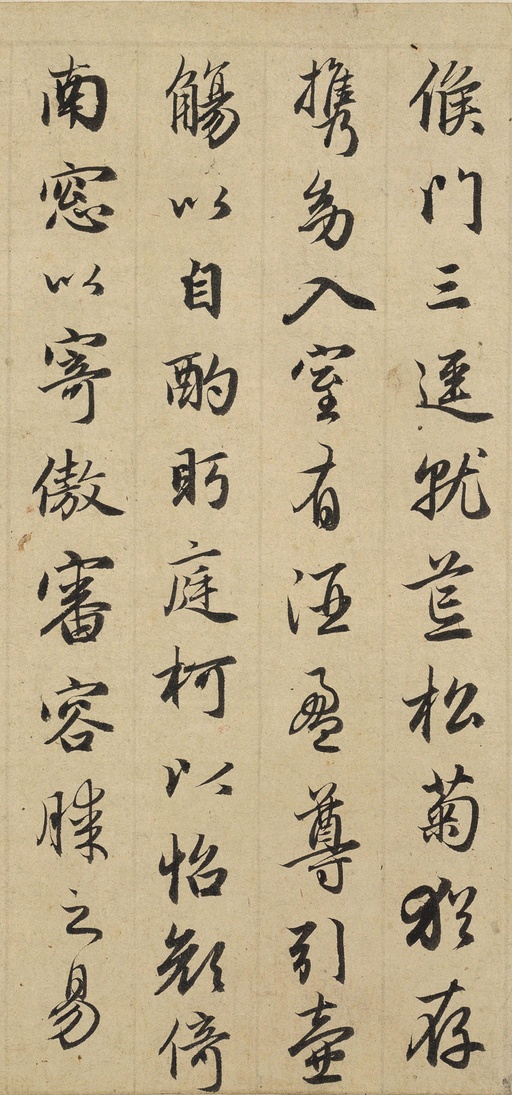 候門三逕就荒松菊猶存
携幼入室有酒盈尊引壺
觴以自酌眄庭柯以怡顏倚
南窓以寄傲審容膝之易